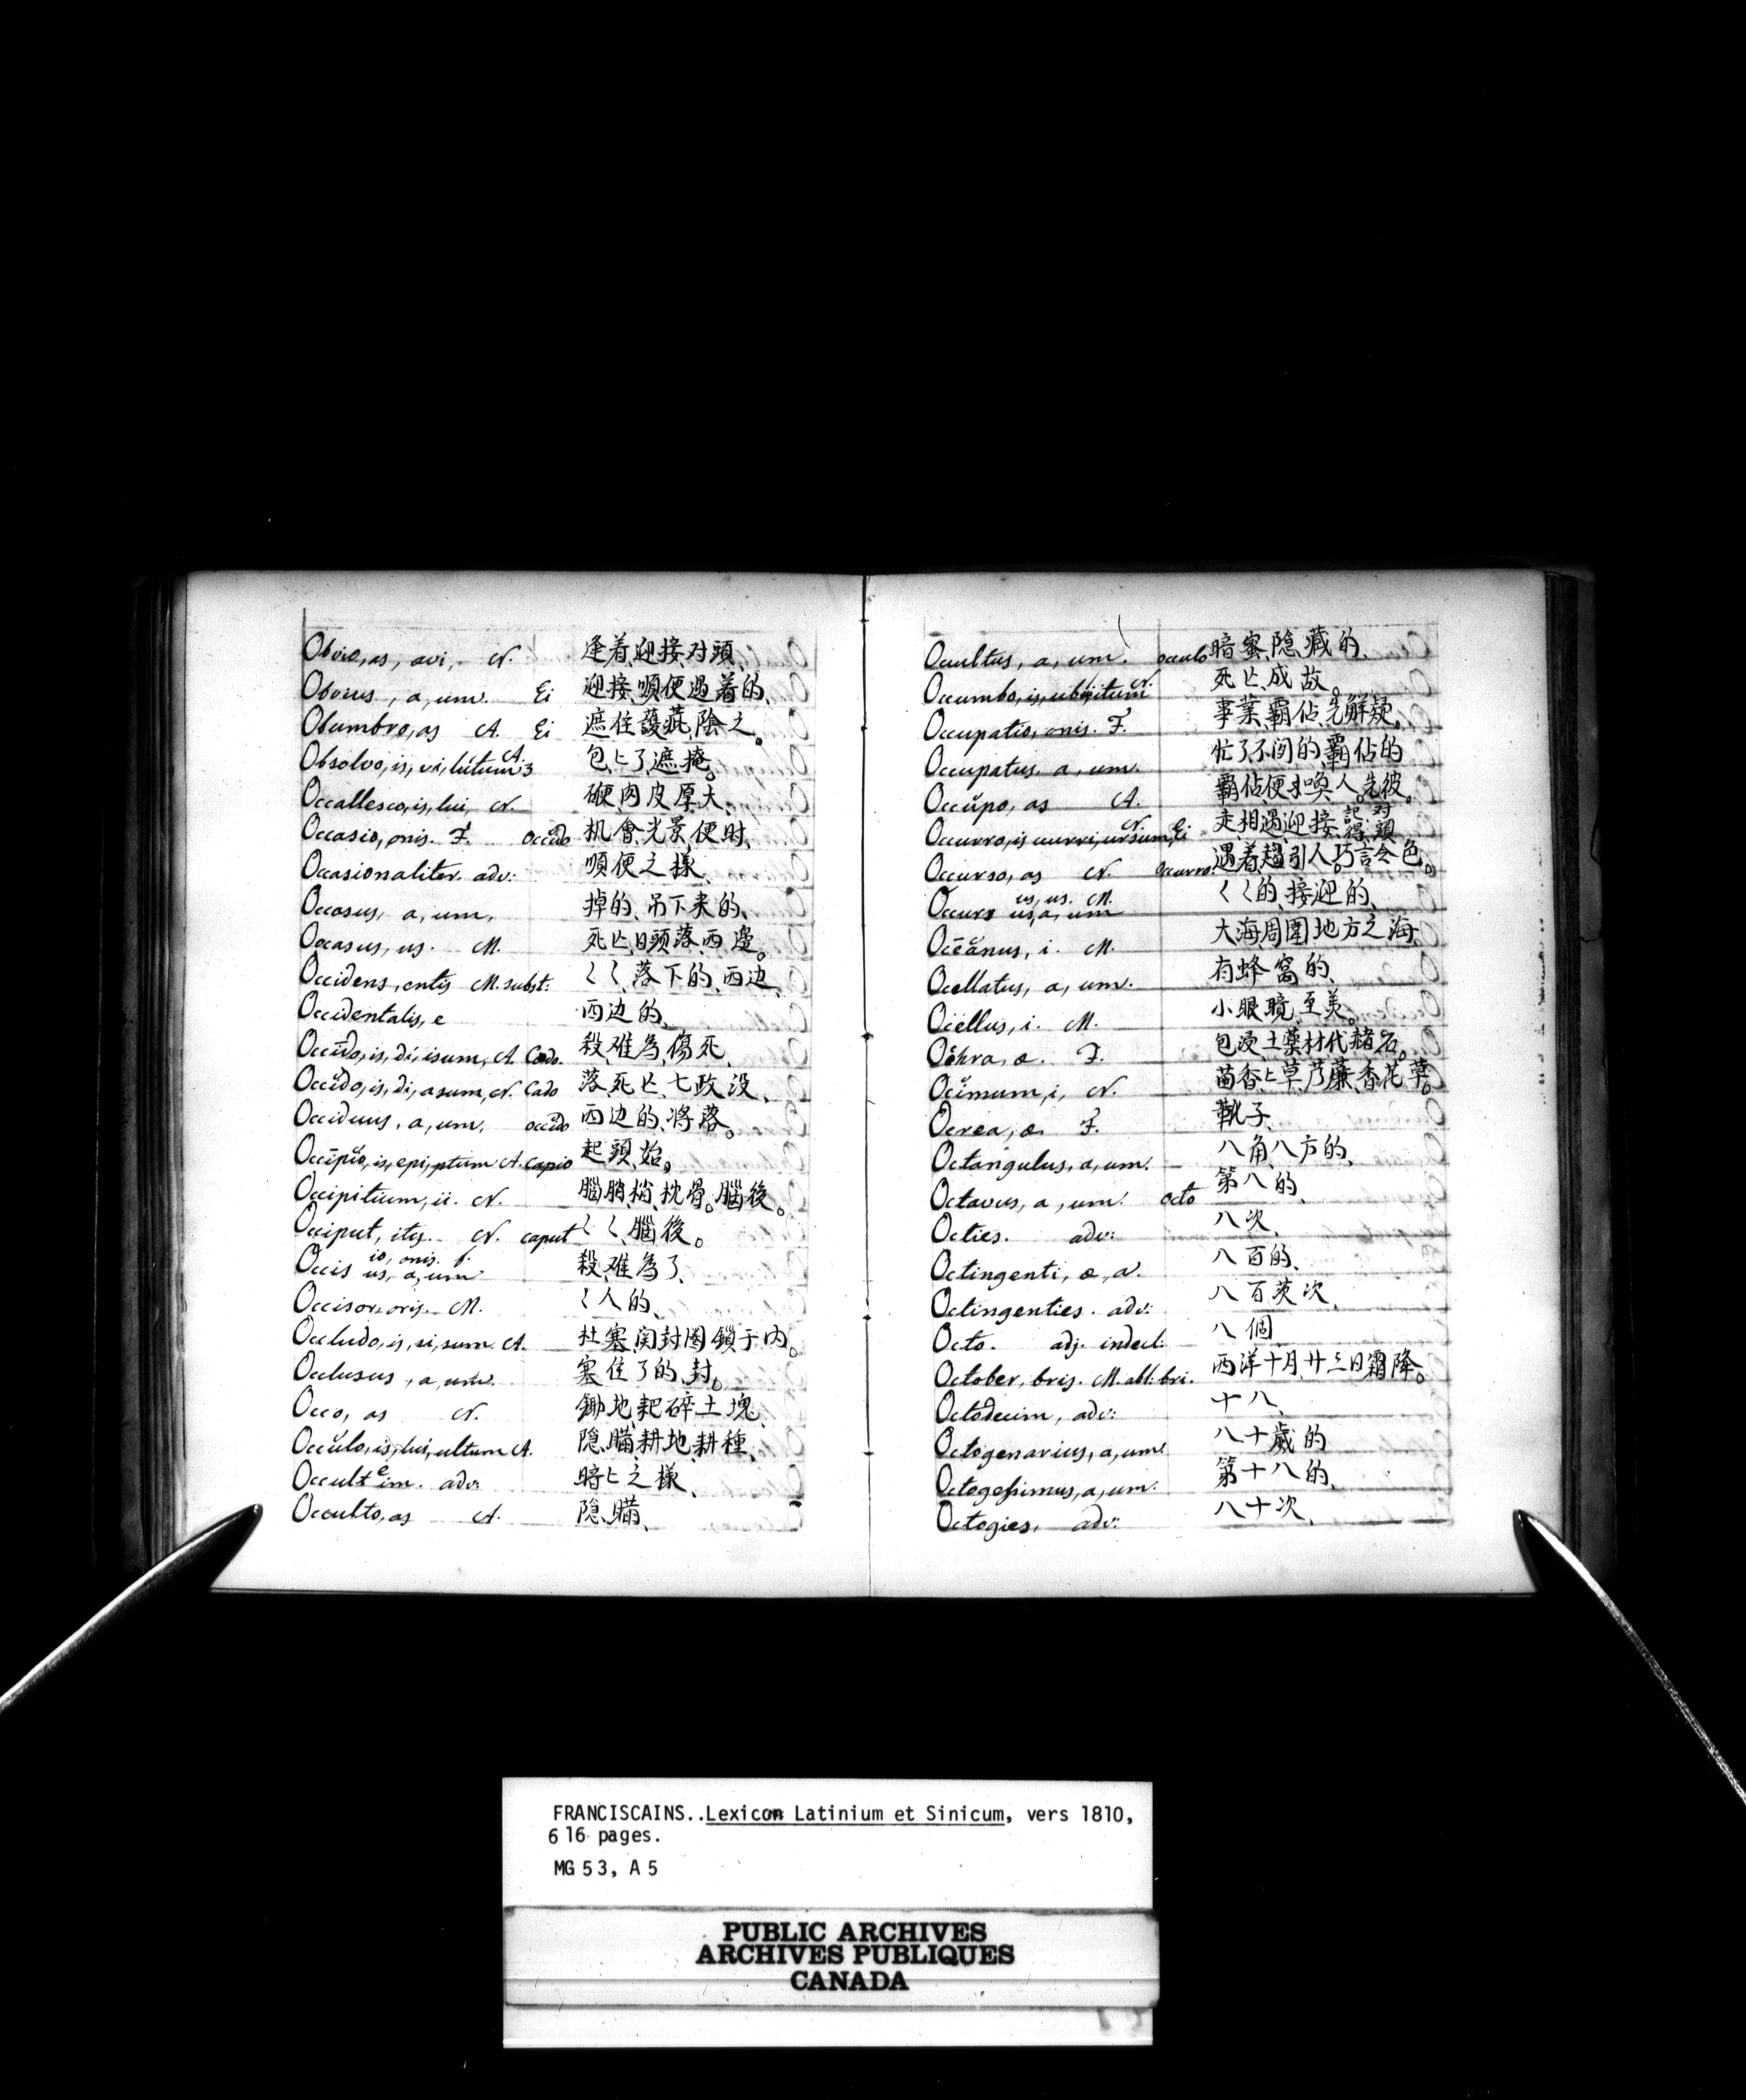 Obvio, as, avi, N. 逢着迎接对頭、
Obvius, a, um. Ei 迎接、順便遇着的、
Obumbro, as A. Ei 遮住護蔽、陰之。
Obvolvo, is, vi, lútum A. 3 包匕了遮掩。
Occallesco, is, lui, N. 硬肉皮厚大、
Occasio, onis. F. occido 机會、光景、便时、
Occasionaliter. adv: 順便之樣、
Occasus, a, um, 掉的、吊下来的、
Occasus, us. M. 死亡、日頭落、西邊。
Occidens, entis M. subst: 〱〱、落下的、西边、
Occidentalis, e 西边的、
Occīdo, is, di, isum, A. Cædo. 殺、难為、傷死、
Occĭdo, is, di, asum, N. Cado 落、死亡、七政没、
Occiduus, a, um, occido 西边的、將落。
Occĭpio, is, epi, ptum A. capio 起頭、始。
Occipitium, ii. N. 腦脖梢、枕骨。腦後。
Occiput, itis. N. caput 〱〱、腦後。
Occis io, onis. f.
us, a, um 殺、难為了、
Occisor, oris. M. 〱人的、
Occludo, is, si, sum. A. 杜塞、関封、圏鎖于内。
Occlusus, a, um. 塞住了的、封。
Occo, as N. 鋤地、耙碎土塊、
Occŭlo, is, lui, ultum A. 隐瞞、耕地、耕種、
Occult e im. adv: 暗匕之樣、
Occulto, as A. 隐瞞、
Occultus, a, um. occulo 暗密、隐藏的、
Occumbo, is, ubui, itum N. 死亡、成故。
Occupatio, onis. F. 事業、霸佔、先解疑。
Occupatus, a, um. 忙了、不闲的、霸佔的
Occŭpo, as A. 霸佔、便求喚人。先彼。
Occurro, is, curri, ursum, N. Ei 走相遇、迎接、記得、对頭
Occurso, as N. occurro. 遇着、趨引人。巧言令色。
Occurs us, us. M.
us, a, um 〱〱的、接迎的、
Ocĕănus, i. M. 大海、周圍地方之海、
Ocellatus, a, um. 有蜂窩的、
Ocellus, i. M. 小眼睛、至美。
Ochra, æ. F. 包浸、土藥材、代赭石。
Ocĭmum, i, N. 茴香匕草、香花草。
Ocrea, æ F. 靴子、
Octangulus, a, um. 八角、八方的、
Octavus, a, um. octo 第八的、
Octies. adv: 八次、
Octingenti, æ, a. 八百的、
Octingenties. adv: 八百次、
Octo. adj. indecl: 八個
October, bris. M. abl: bri. 西洋十月、廿三日霜降。
Octodecim, adv: 十八、
Octogenarius, a, um. 八十歲的
Octogesimus, a, um. 第十八的、
Octogies, adv: 八十次、
FRANCISCAINS..Lexicon Latinium et Sinicum, vers 1810,
616 pages.
MG 53, A 5
PUBLIC ARCHIVES
ARCHIVES PUBLIQUES
CANADA